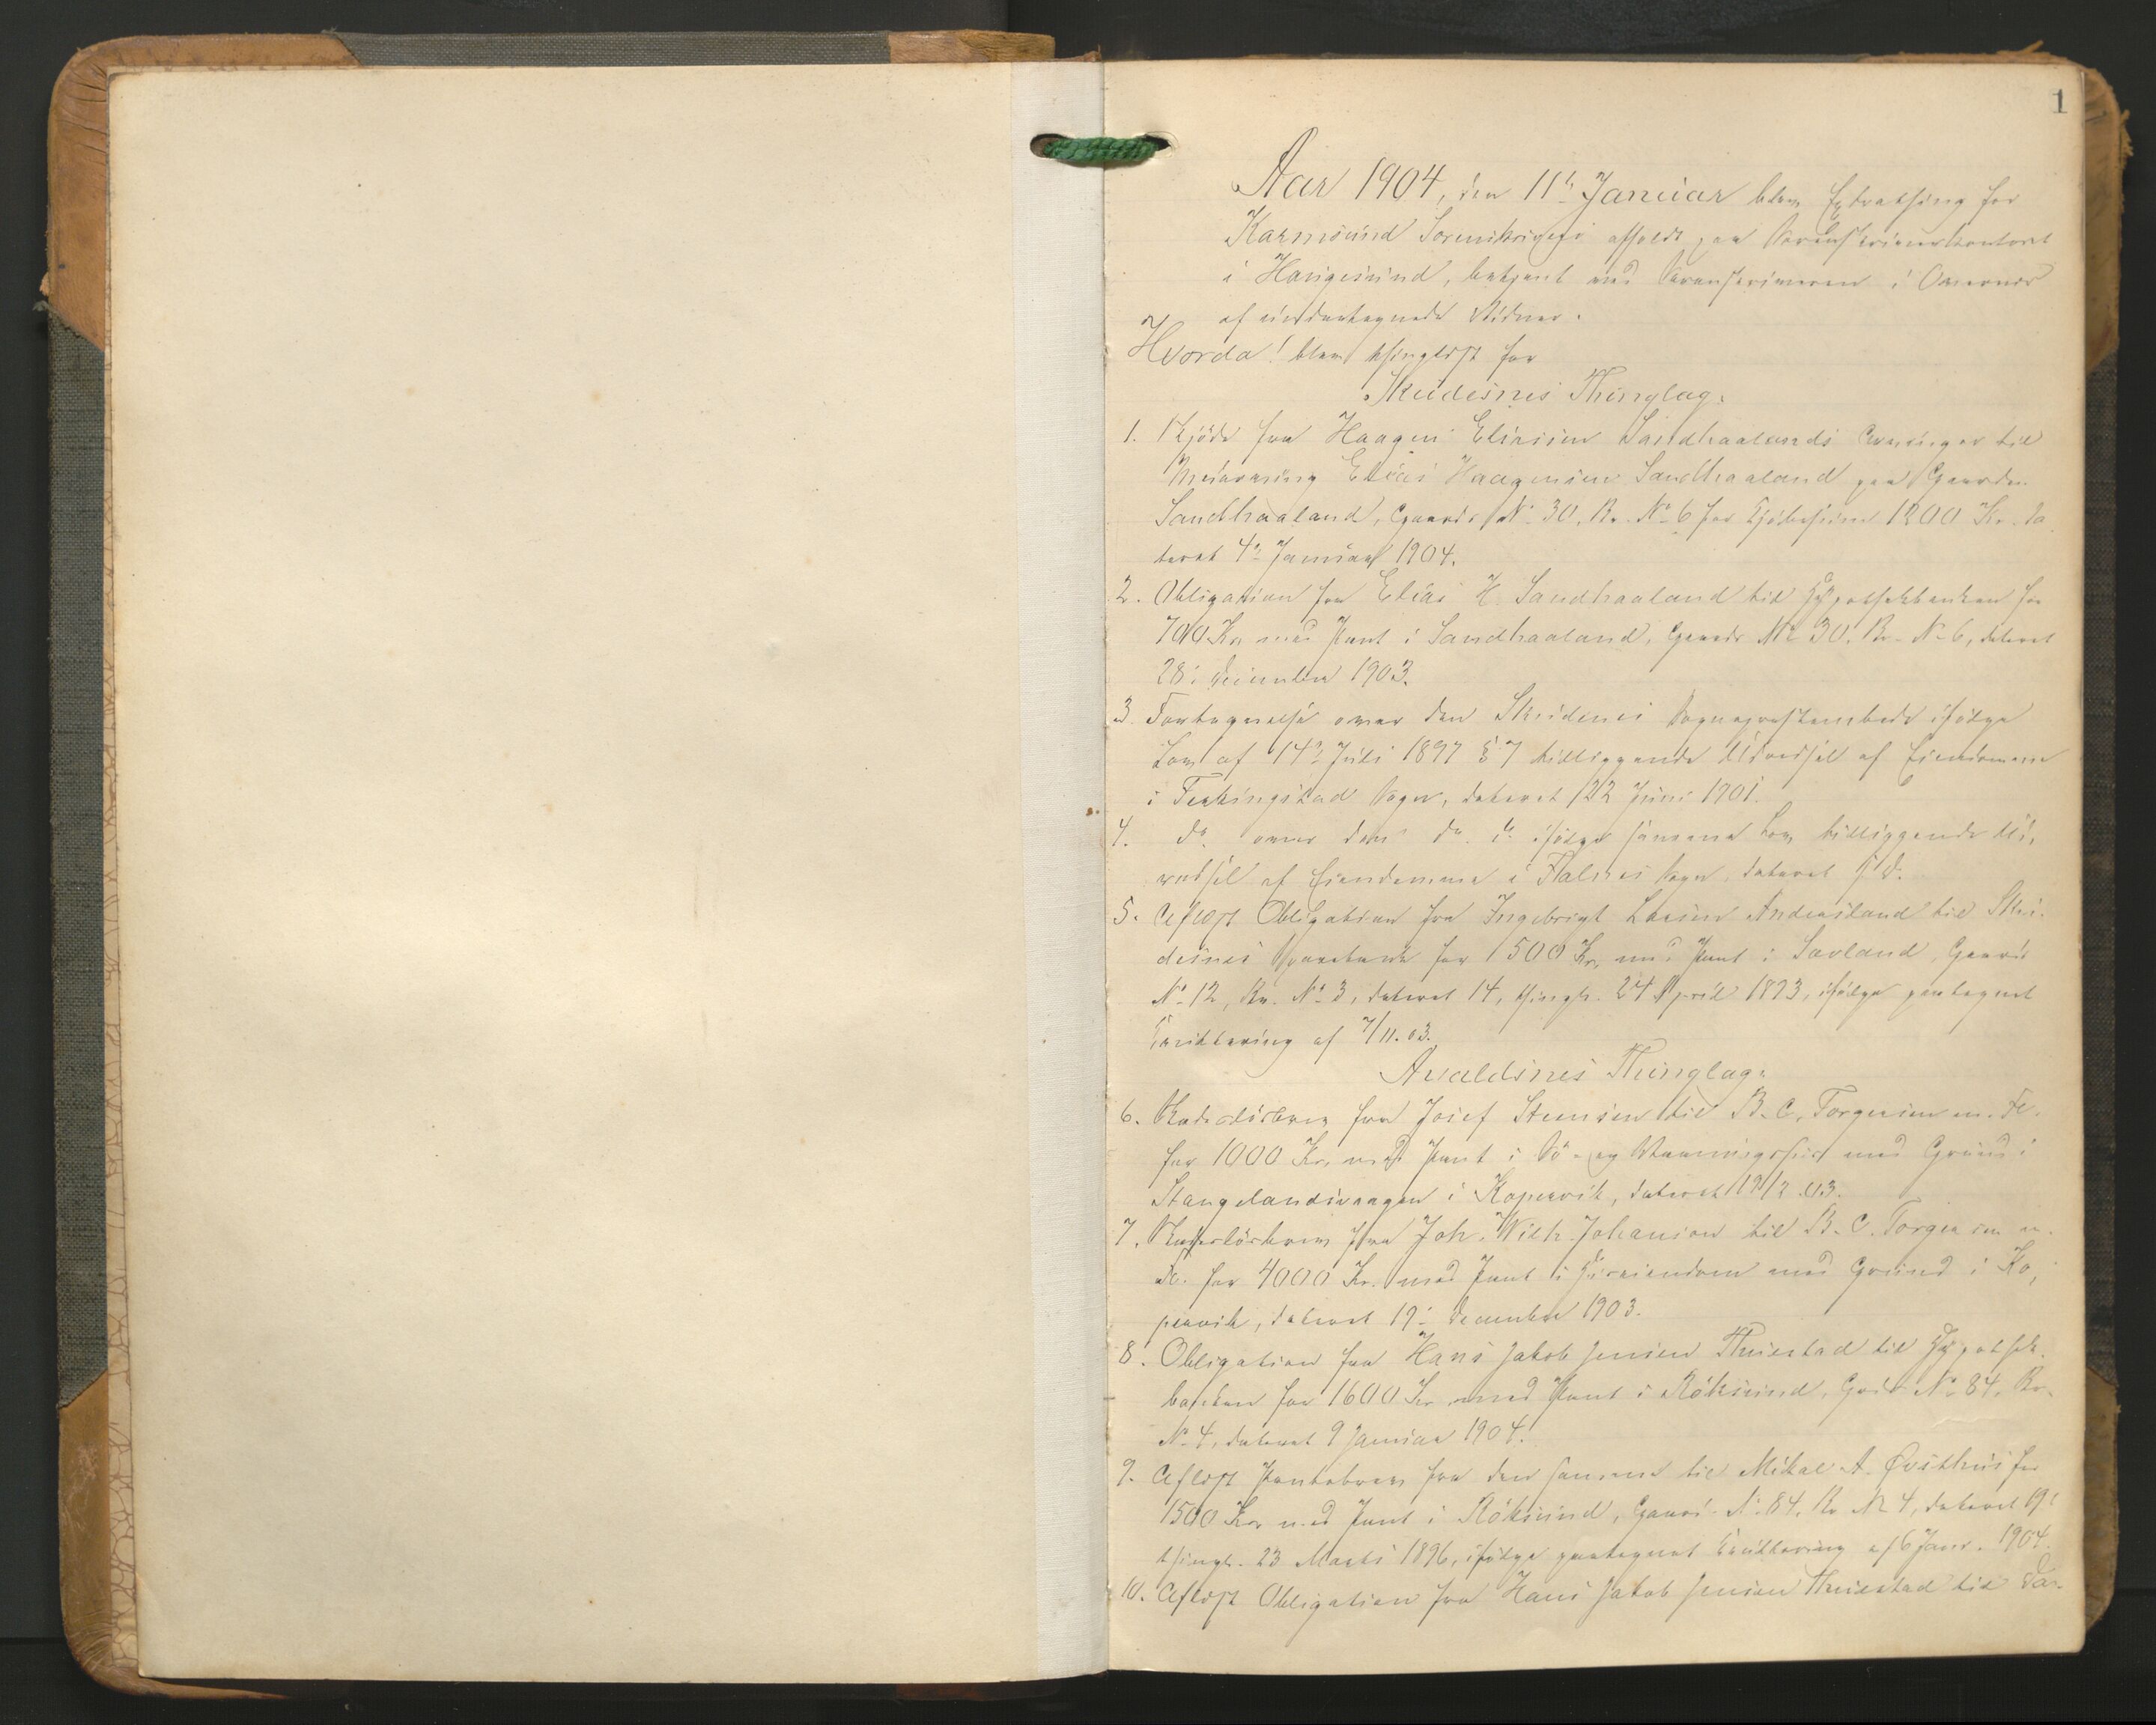 1
Aar 1904, den 11te Januar blev Extrathing for
Karmsund Sorenskriveri afholdt paa Sorenskriverkontoret
i Haugesund, betjent med Sorenskriveren i Overvær
af undertegnede Vidner.
Hvorda! blev thinglæst for
Skudesnes Thinglag:
1. Skjöde fra Haagen Eliassen Sandhaalands Arvinger til
Medarving Elias Haagensen Sandhaaland paa Gaarden
Sandhaaland, Gaards No 30, Br. No 6 for Kjöbesum 1200 Kr. da
teret 4de Januar 1904.
2. Obligation fra Elias H. Sandhaaland til Hypothekbanken for
700 Kr. med Pant i Sandhaaland, Gaards No 30, Br. No 6, dateret
28de December 1903.
3. Fortegnelse over den Skudenes Sogneprestembede ifölge
Lov af 14de Juli 1897 § 7 tilliggende af Eiendomme
i Ferkingstad Sogn, dateret 22 Juni 1901.
4. do. over den do. do. ifölge samme Lov tilliggende
af Eiendomme i Falnes Sogn, dateret s. D.
5. Aflæst Obligation fra Ingebrigt Larsen Andersland til Sku-
desnes Sparebank for 1500 Kr. med Pant i Sævland, Gaards
No 12, Br. No 3, dateret 14, thingl. 24 April 1893, ifölge paategnet
Kvittering af 7/11.03.
Avaldsnes Thinglag:
6. Skadeslösbrev fra Josef Stensen til B. C. Torgersen m. Fl.
for 1000 Kr. med Pant i Sö- og med Grund i
Stangelandsvaagen i Kopervik, dateret 19/12.03.
7. Skadeslösbrev fra Joh. Wilh. Johansen til B. C. Torgersen m.
Fl. for 4000 Kr. med Pant i Huseiendom med Grund i Ko-
pervik, dateret 19de December 1903.
8. Obligation fra Hans Jakob Jensen Thuestad til Hypothek-
banken for 1600 Kr. med Pant i Röksund, Gards No 84, Br.
No 4, dateret 9 Januar 1904.
9. Aflæst Pantebrev fra den samme til Mikal A. Østhus for
1500 Kr. med Pant i Röksund, Gaards No 84, Br. No 4, dateret 19de
thingl. 23 Marts 1896, ifölge paategnet Kvittering af 6 Janr. 1904.
10. Aflæst Obligation fra Hans Jakob Jensen Thuestad til